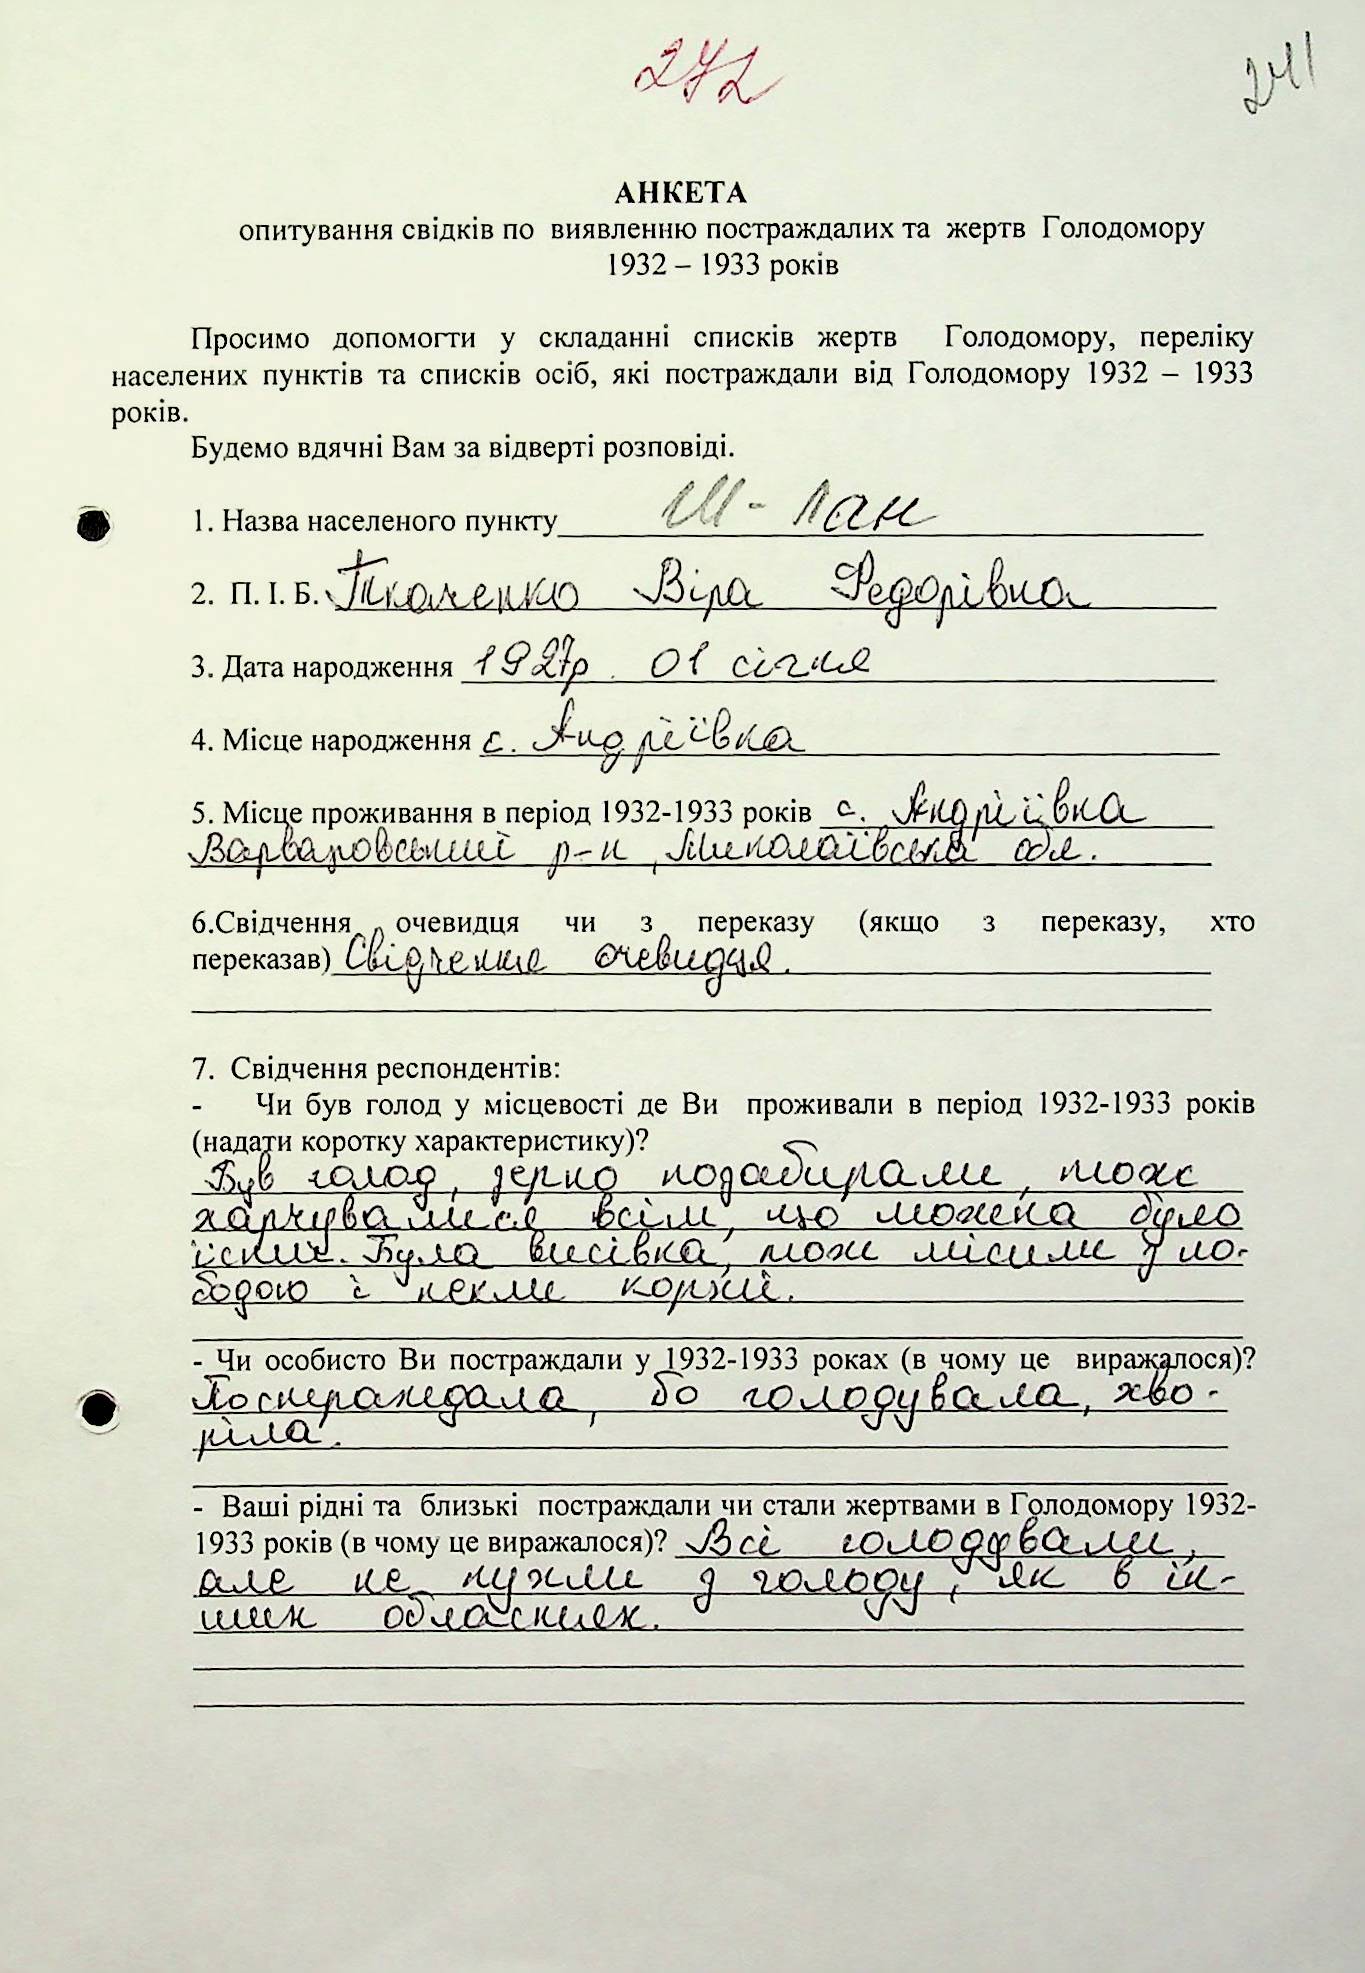 272
241
АНКЕТА
опитування свідків по виявленню постраждалих та жертв Голодомору
1932 – 1933 років
Просимо допомогти у складанні списків жертв Голодомору, переліку
населених пунктів та списків осіб, які постраждали від Голодомору 1932 – 1933
років.
Будемо вдячні Вам за відверті розповіді.
1. Назва населеного пункту Ш-Лан
2. П. І. Б. Ткаченко Віра Федорівна
3. Дата народження 1927р. 01 січня
4. Місце народження с. Андріївка
5. Місце проживання в період 1932-1933 років с. Андріївка
Варваровський р-н, Миколаївська обл.
6.Свідчення очевидця чи з переказу (якщо з переказу, хто
переказав) Свідчення очевидця.
7. Свідчення респондентів:
- Чи був голод у місцевості де Ви проживали в період 1932-1933 років
(надати коротку характеристику)?
Був голод, зерно позабирали, тож
харчувалися всім, що можна було
їсти. Була висівка, тож місили з ло-
бодою і пекли коржі.
- Чи особисто Ви постраждали у 1932-1933 роках (в чому це виражалося)?
Постраждала, бо голодувала, хво-
ріла.
- Ваші рідні та близькі постраждали чи стали жертвами в Голодомору 1932-
1933 років (в чому це виражалося)? Всі голодували,
але не пухли з голоду, як в ін-
ших областях.